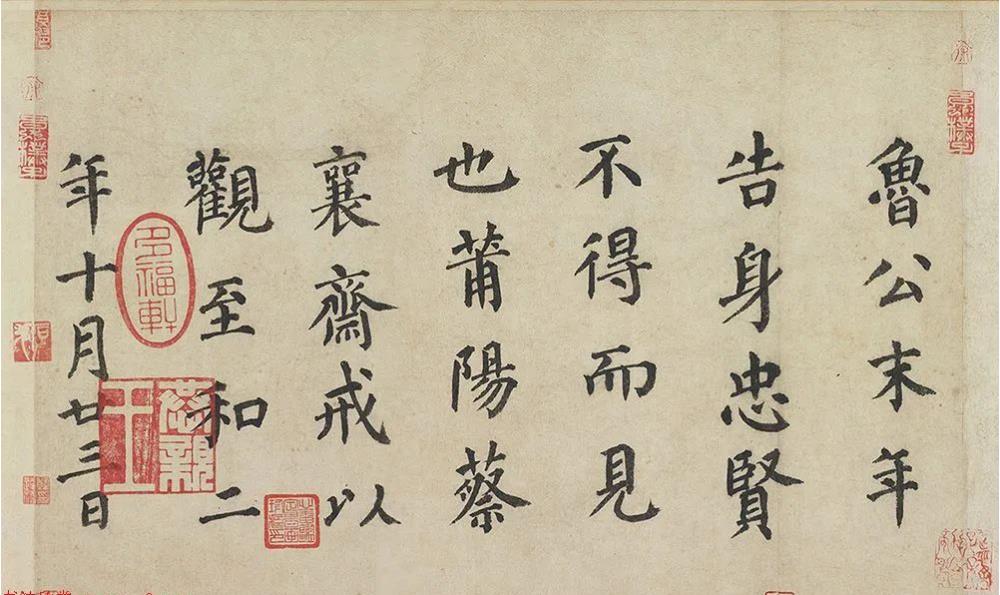 魯公末年
告身忠賢
不得而見
也莆陽蔡
襄齋戒以
觀至和二
年十月廿三日
多福軒
恭親王